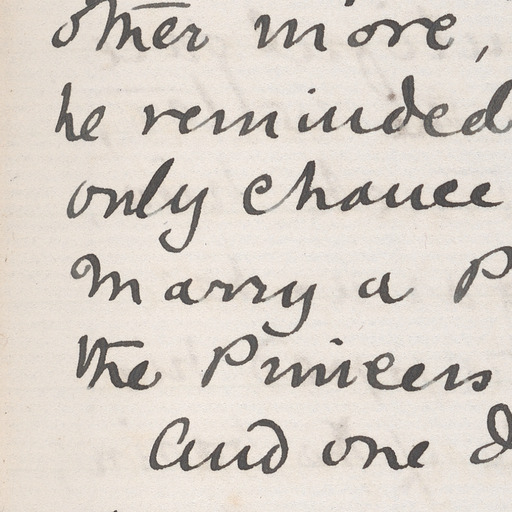 other more,
he reminded
only chance
marry a P
the Princess
and one d